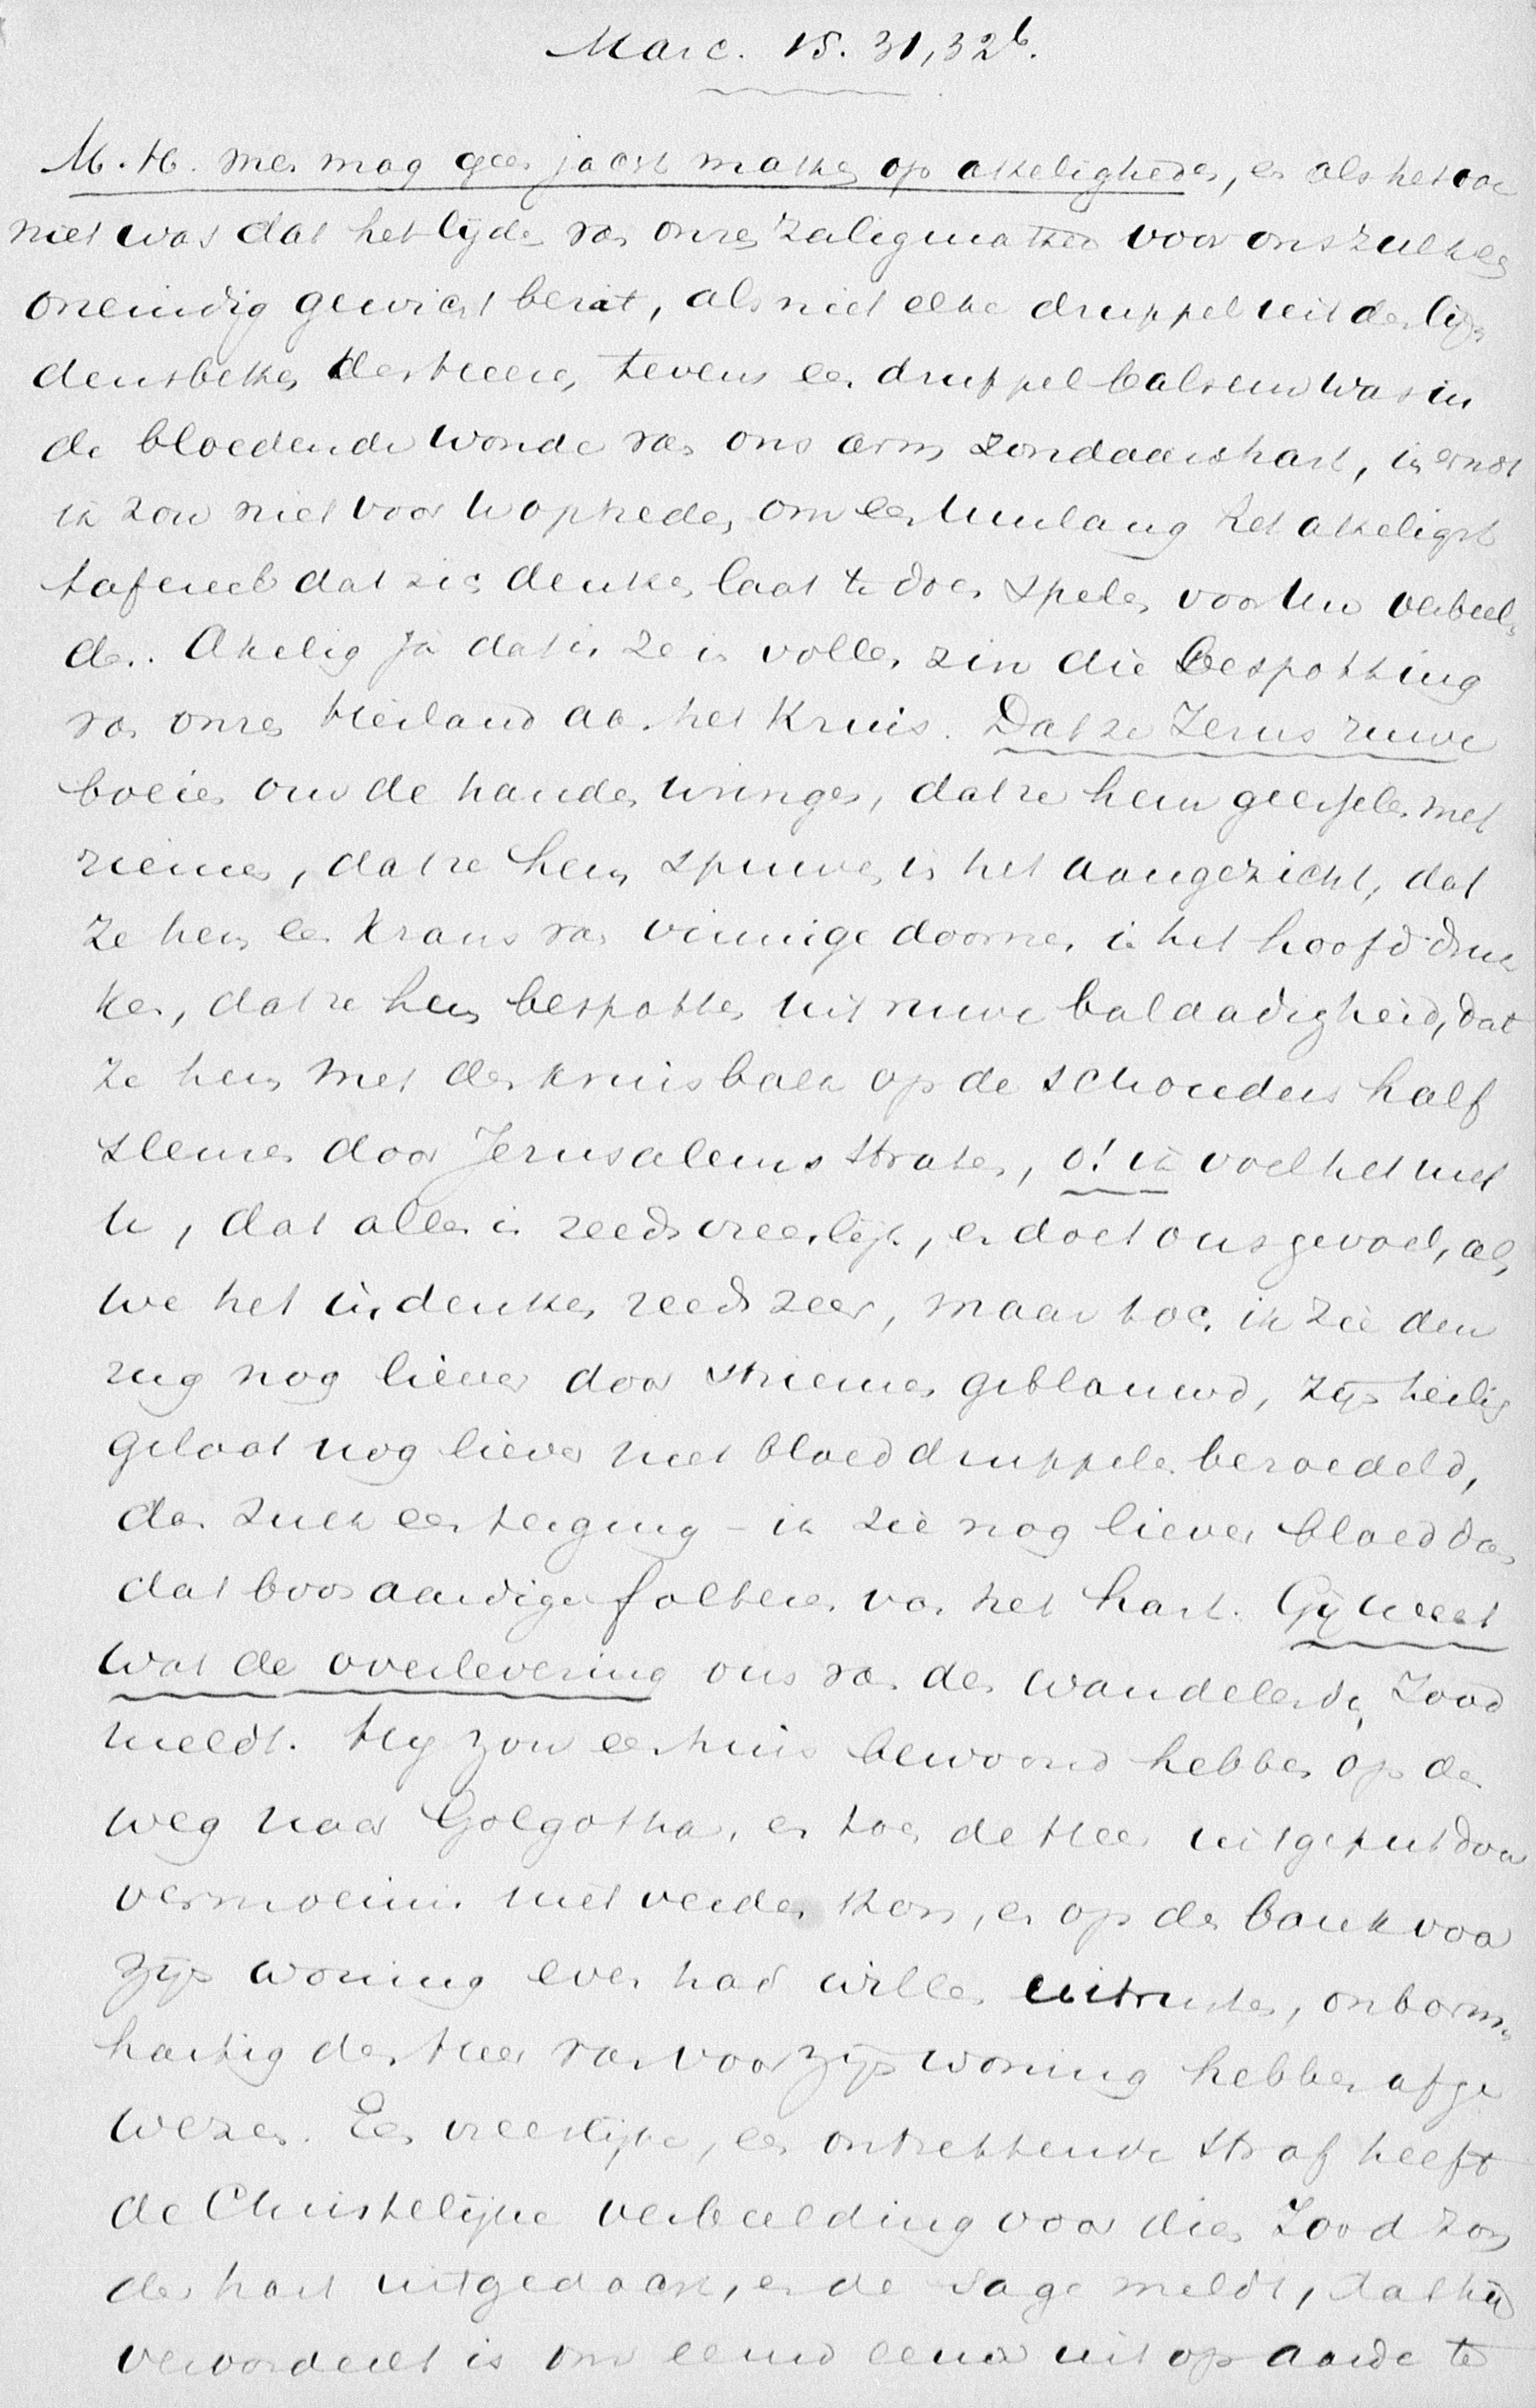 Marc. 15. 31, 32b.
M. H. men mag geen jacht maken op akeligheden, en als het ook
niet was dat het lijden van onzen Zaligmaker voor ons zulk een
oneindig gewicht bezit, als niet elke druppel uit den lij-
densbeker des Heeren, tevens een druppel balsem was in
de bloedende wonde van ons arm zondaarshart, in ernst
ik zou niet voor U optreden, om een uur lang het akeligst
tafereel dat zich denken laat te doen spelen voor Uw verbeel-
den. Akelig ja dat is ze in vollen zin die bespotting
van onzen Heiland aan het Kruis. Dat ze Jezus ruwe
boeien om de handen wringen, dat ze hem geeselen met
riemen, dat ze hem spuwen in het aangezicht, dat
ze hem een Krans van vinnige doornen in het hoofd druk
ken, dat ze hem bespotten uit ruwe baldadigheid, dat
ze hem met den kruisbalk op de schouders half
sleuren door Jerusalems straten, o! ik voel het met
U, dat alles is reeds vreeslijk, en doet ons gevoel, als
we het indenken reeds zeer, maar toch ik zie den
rug nog liever door striemen geblauwd, zijn heilig
gelaat nog liever met bloeddruppelen bezoedeld,
dan zulk een terging – ik zie nog liever bloed dan
dat boosaardige folteren van het hart. Gij weet
wat de overlevering ons van den wandelenden Jood
meldt. Hij zou een huis bewoond hebben op den
weg naar Golgotha, en toen de Heer uitgeput door
vermoeienis niet verder kon, en op de bank voor
zijn woning even had willen uitrusten, onbarm-
hartig den Heer van voor zijn woning hebben afge
wezen. Een vreeslijke, een ontzettende straf heeft
de Christelijke verbeelding voor dien Jood zon
der hart uitgedacht, en de sage meldt, dat hij
veroordeelt is om eeuw in eeuw uit op aarde te